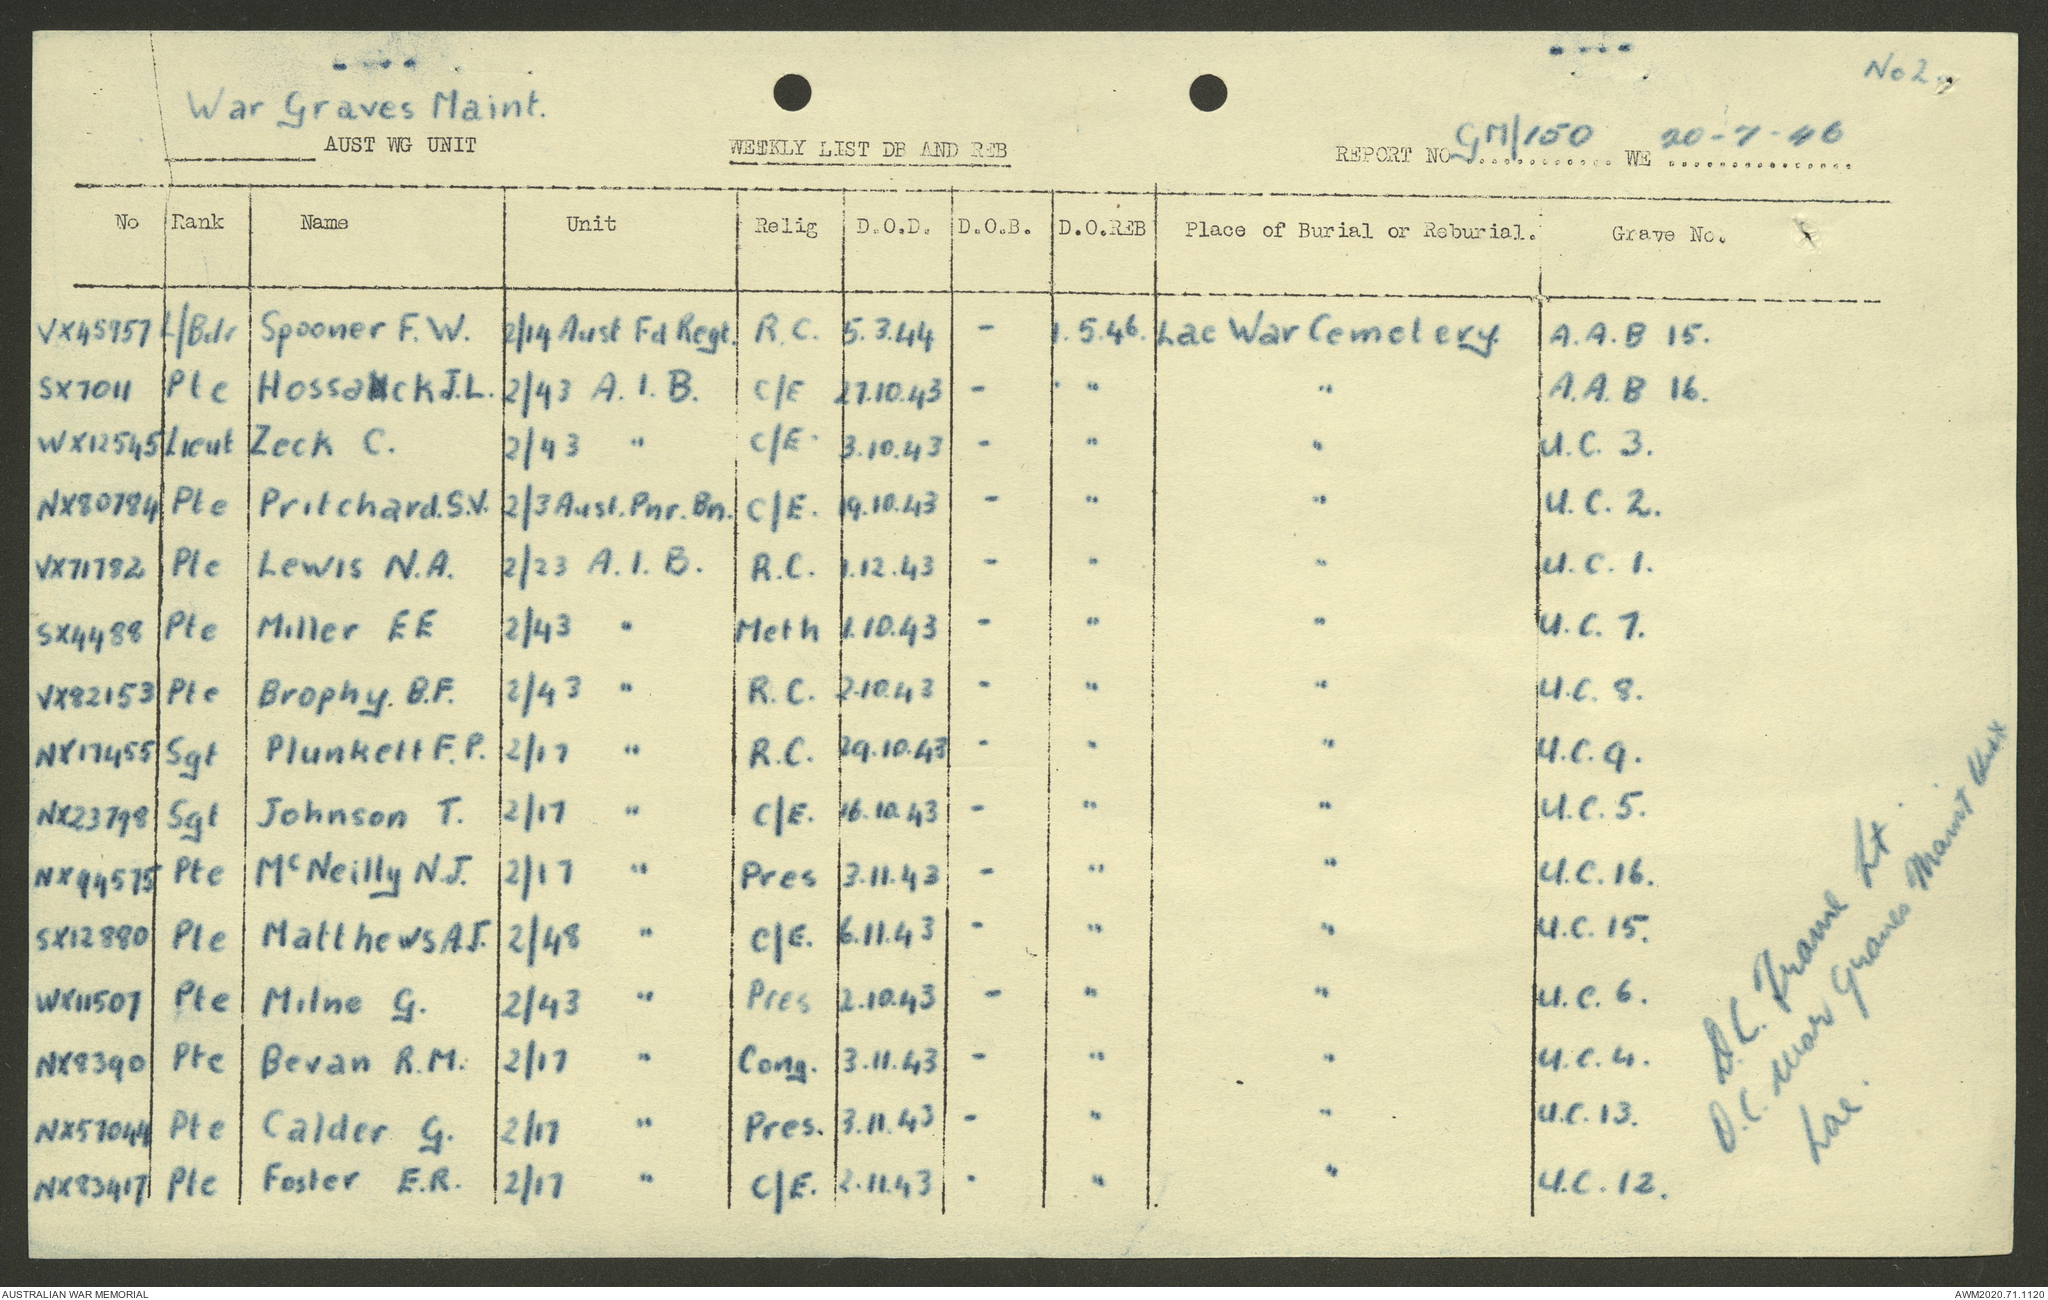 No 2.
War Graves Maint.
AUST WG UNIT WEEKLY LIST DB AND REB REPORT NO GM/150 WE 20-7-46
No Rank Name Unit Relig D.O.D. D.O.B. D.O.REB Place of Burial or Reburial. Grave No.
VX45957 L/Bdr Spooner F.W. 2/14 Aust Fd Regt. R.C. 5.3.44 - 1.5.46. Lae War Cemetery. A.A.B 15.
SX7011 Pte Hossack J.L. 2/43 A.I.B. C/E 27.10.43 - " " A.A.B 16.
WX12545 Lieut Zeck C. 2/43 " C/E. 3.10.43 - " " U.C. 3.
NX80784 Pte Pritchard.S.V. 2/3 Aust.Pnr.Bn. C/E. 19.10.43 - " " U.C. 2.
VX71782 Pte Lewis N.A. 2/23 A.I.B. R.C. 1.12.43 - " " U.C. 1.
SX4488 Pte Miller EE 2/43 " Meth 1.10.43 - " " U.C. 7.
VX82153 Pte Brophy. B.F. 2/43 " R.C. 2.10.43 - " " U.C. 8.
NX17455 Sgt Plunkett F.P. 2/17 " R.C. 29.10.43 - " " U.C. 9.
NX23798 Sgt Johnson T. 2/17 " C/E. 16.10.43 - " " U.C. 5.
NX94575 Pte McNeilly N.J. 2/17 " Pres 3.11.43 - " " U.C. 16.
SX12880 Pte Matthews A.J. 2/48 " C/E. 6.11.43 - " " U.C. 15.
WX11507 Pte Milne G. 2/43 " Pres 2.10.43 - " " U.C. 6.
NX8390 Pte Bevan R.M. 2/17 " Cong. 3.11.43 - " " U.C. 4.
NX57044 Pte Calder G. 2/17 " Pres. 3.11.43 - " " U.C. 13.
NX83417 Pte Foster E.R. 2/17 " C/E. 2.11.43 - " " U.C. 12.
D.C. Frame Lt.
O.C. War Graves Maint Unit
Lae.
AUSTRALIAN WAR MEMORIAL AWM2020.71.1120